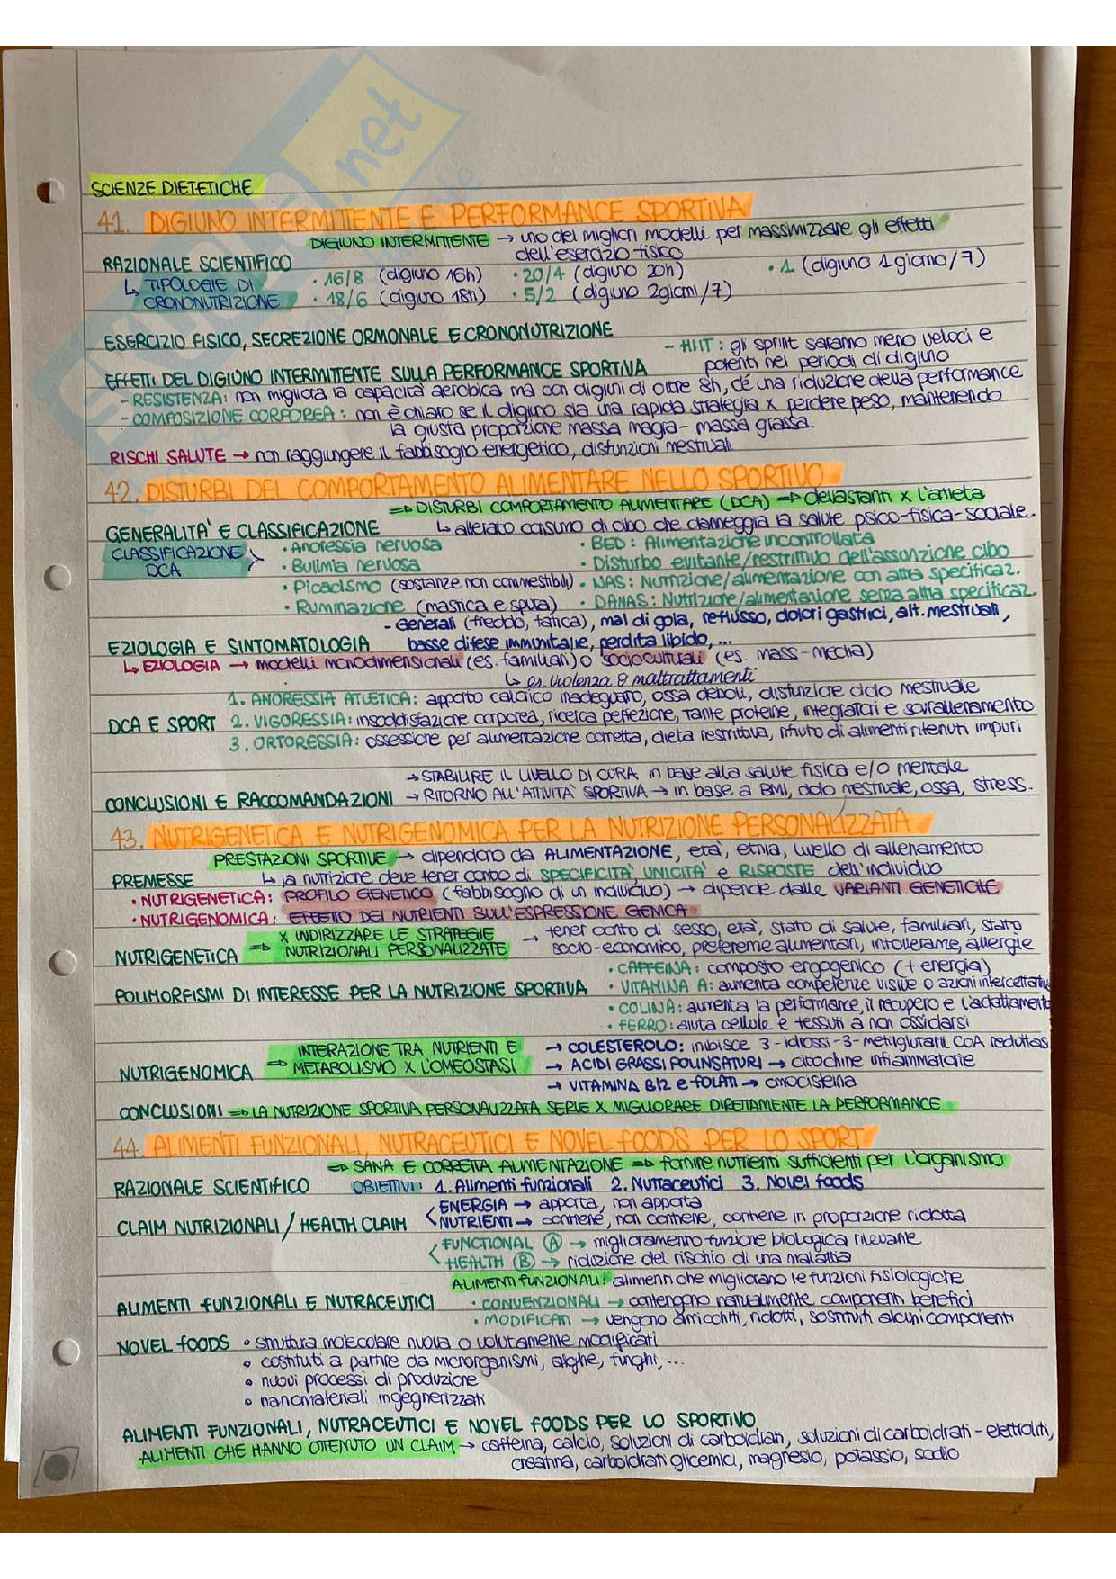 SCIENZE DIETETICHE
41. DIGIUNO INTERMITTENTE E PERFORMANCE SPORTIVA
DIGIUNO INTERMITTENTE → uno dei migliori modelli per massimizzare gli effetti
dell'esercizio fisico
RAZIONALE SCIENTIFICO
↳ TIPOLOGIE DI CRONONUTRIZIONE
• 16/8 (digiuno 16h) • 20/4 (digiuno 20h) • 1 (digiuno 1 giorno/7)
• 18/6 (digiuno 18h) • 5/2 (digiuno 2giorni/7)
ESERCIZIO FISICO, SECREZIONE ORMONALE E CRONONUTRIZIONE
- HIIT: gli sprint saranno meno veloci e
potenti nei periodi di digiuno
EFFETTI DEL DIGIUNO INTERMITTENTE SULLA PERFORMANCE SPORTIVA
- RESISTENZA: non migliora la capacità aerobica ma con digiuni di oltre 8h, c'è una riduzione della performance
- COMPOSIZIONE CORPOREA: non è chiaro se il digiuno sia una rapida strategia x perdere peso, mantenendo
la giusta proporzione massa magra - massa grassa.
RISCHI SALUTE → non raggiungere il fabbisogno energetico, disfunzioni mestruali
42. DISTURBI DEL COMPORTAMENTO ALIMENTARE NELLO SPORTIVO
⇒ DISTURBI COMPORTAMENTO ALIMENTARE (DCA) → devastanti x l'atleta
GENERALITA' E CLASSIFICAZIONE ↳ alterato consumo di cibo che danneggia la salute psico-fisica-sociale.
CLASSIFICAZIONE DCA
• Anoressia nervosa • BED: Alimentazione incontrollata
• Bulimia nervosa • Disturbo evitante/restrittivo dell'assunzione cibo
• Picacismo (sostanze non commestibili) • NAS: Nutrizione/alimentazione con altra specificaz.
• Ruminazione (mastica e sputa) • DANAS: Nutrizione/alimentazione senza altra specificaz.
- Generali (freddo, fatica), mal di gola, reflusso, dolori gastrici, alt. mestruali,
EZIOLOGIA E SINTOMATOLOGIA basse difese immunitarie, perdita libido, ...
↳ EZIOLOGIA → modelli monodimensionali (es. familiari) o socioculturali (es. mass-media)
↳ es. violenza o maltrattamenti
1. ANORESSIA ATLETICA: apporto calorico inadeguato, ossa deboli, disfunzione ciclo mestruale
DCA E SPORT 2. VIGORESSIA: insoddisfazione corporea, ricerca perfezione, tante proteine, integratori e sovrallenamento
3. ORTORESSIA: ossessione per alimentazione corretta, dieta restrittiva, rifiuto di alimenti ritenuti impuri
→ STABILIRE IL LIVELLO DI CURA in base alla salute fisica e/o mentale
CONCLUSIONI E RACCOMANDAZIONI → RITORNO ALL'ATTIVITA' SPORTIVA → in base a BMI, ciclo mestruale, ossa, stress.
43. NUTRIGENETICA E NUTRIGENOMICA PER LA NUTRIZIONE PERSONALIZZATA
PRESTAZIONI SPORTIVE → dipendono da ALIMENTAZIONE, età, etnia, livello di allenamento
PREMESSE ↳ la nutrizione deve tener conto di SPECIFICITA', UNICITA' e RISPOSTE dell'individuo
• NUTRIGENETICA: PROFILO GENETICO (fabbisogno di un individuo) → dipende dalle VARIANTI GENETICHE
• NUTRIGENOMICA: EFFETTO DEI NUTRIENTI SULL'ESPRESSIONE GENICA
NUTRIGENETICA ⇒ X INDIRIZZARE LE STRATEGIE
NUTRIZIONALI PERSONALIZZATE
→ tener conto di sesso, età, stato di salute, familiari, stato
socio-economico, preferenze alimentari, intolleranze, allergie
• CAFFEINA: composto ergogenico (+ energia)
POLIMORFISMI DI INTERESSE PER LA NUTRIZIONE SPORTIVA • VITAMINA A: aumenta competenze visive o azioni intercettative
• COLINA: aumenta la performance, il recupero e l'adattamento
• FERRO: aiuta cellule e tessuti a non ossidarsi
NUTRIGENOMICA ⇒ INTERAZIONE TRA NUTRIENTI E
METABOLISMO X L'OMEOSTASI
→ COLESTEROLO: inibisce 3-idrossi-3-metilglutaril CoA reduttasi
→ ACIDI GRASSI POLINSATURI → citochine infiammatorie
→ VITAMINA B12 e FOLATI → omocisteina
CONCLUSIONI ⇒ LA NUTRIZIONE SPORTIVA PERSONALIZZATA SERVE X MIGLIORARE DIRETTAMENTE LA PERFORMANCE
44. ALIMENTI FUNZIONALI, NUTRACEUTICI E NOVEL FOODS PER LO SPORT
⇒ SANA E CORRETTA ALIMENTAZIONE ⇒ fornire nutrienti sufficienti per l'organismo
RAZIONALE SCIENTIFICO OBIETTIVI: 1. Alimenti funzionali 2. Nutraceutici 3. Novel foods
CLAIM NUTRIZIONALI / HEALTH CLAIM
ENERGIA → apporta, non apporta
NUTRIENTI → contiene, non contiene, contiene in proporzione ridotta
FUNCTIONAL (A) → miglioramento funzione biologica rilevante
HEALTH (B) → riduzione del rischio di una malattia
ALIMENTI FUNZIONALI: alimenti che migliorano le funzioni fisiologiche
ALIMENTI FUNZIONALI E NUTRACEUTICI • CONVENZIONALI → contengono naturalmente componenti benefici
• MODIFICATI → vengono arricchiti, ridotti, sostituiti alcuni componenti
NOVEL FOODS • struttura molecolare nuova o volutamente modificati
• costituiti a partire da microrganismi, alghe, funghi, ...
• nuovi processi di produzione
• nanomateriali ingegnerizzati
ALIMENTI FUNZIONALI, NUTRACEUTICI E NOVEL FOODS PER LO SPORTIVO
ALIMENTI CHE HANNO OTTENUTO UN CLAIM → caffeina, calcio, soluzioni di carboidrati, soluzioni di carboidrati - elettroliti,
creatina, carboidrati glicemici, magnesio, potassio, sodio